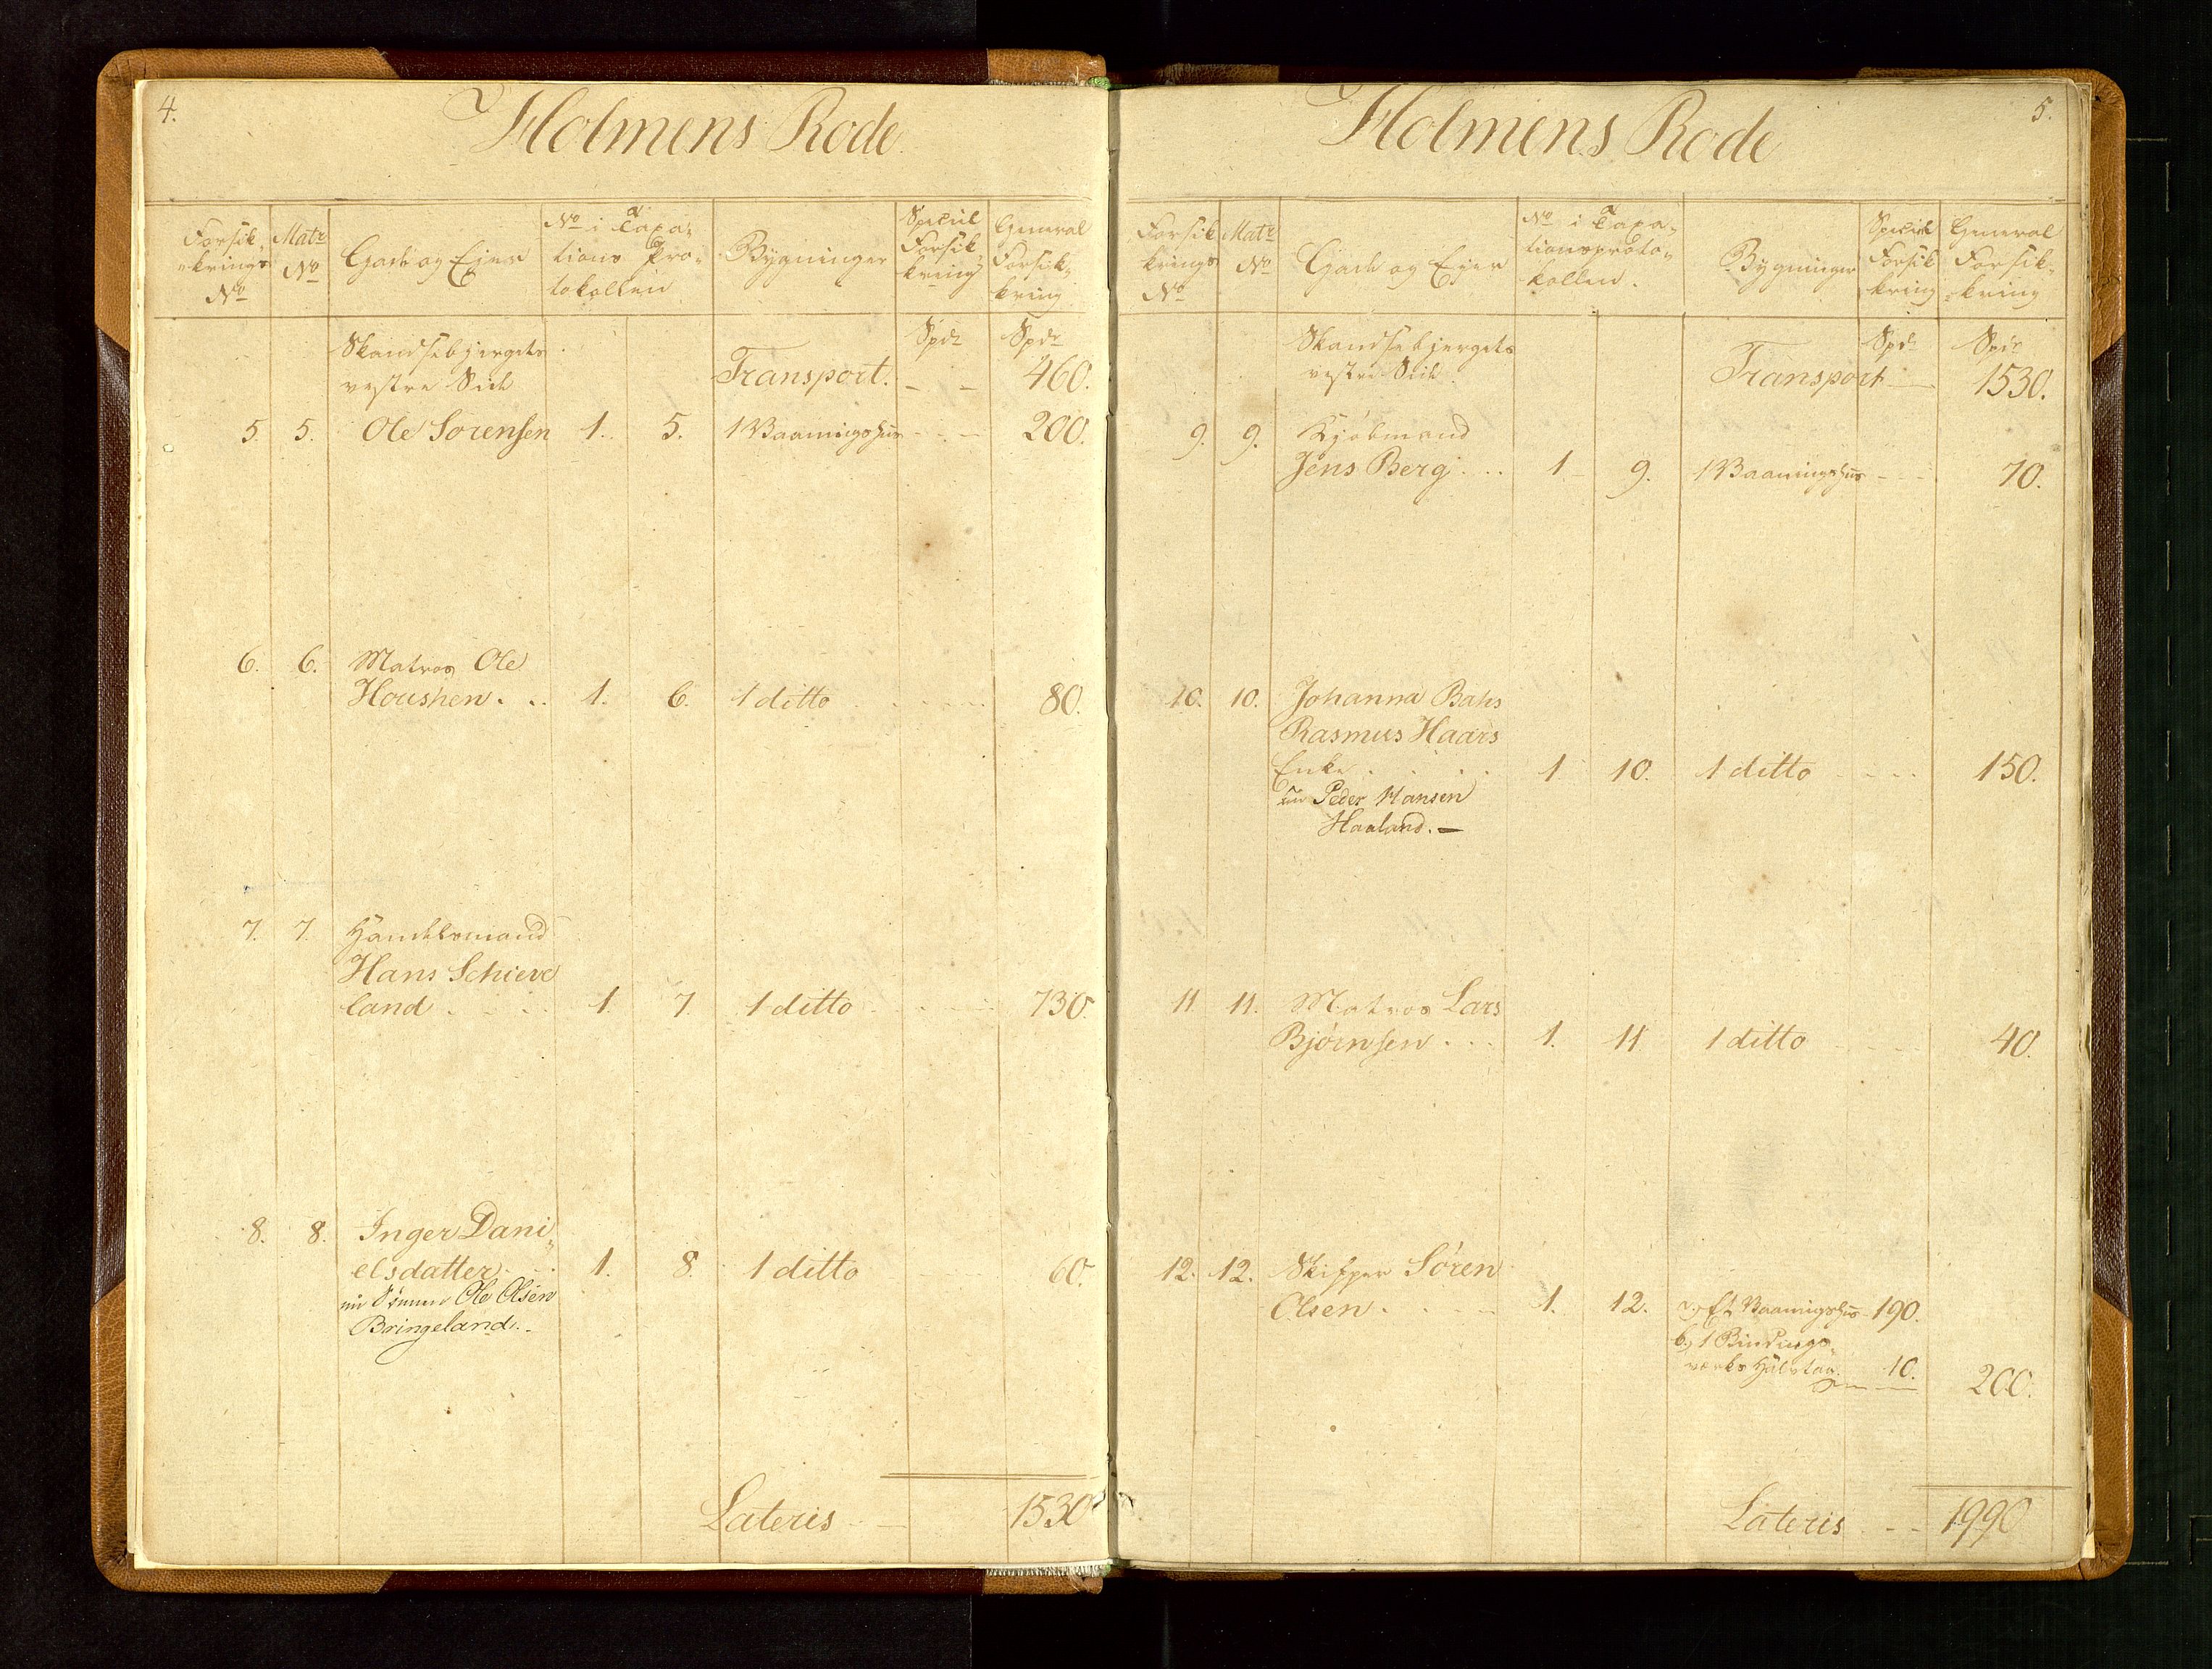 4.
Holmens Rode.
Forsik-
krings
No
Matr
No
Gade og Ejer
No i Taxa-
tions Pro-
tokollen
Bygninger
Speciel
Forsik
kring
General
Forsik-
kring
Skandsebjergets
vestre Side
Spdr
Spdr
Transport. - - 460.
5. 5. Ole Sørensen 1. 5. 1 Vaaningshus - - - 200.
6. 6. Matros Ole
Houshen. . . 1. 6. 1 ditto 80.
7. 7. Handelsmand
Hans Schieve
land . . . . 1. 7. 1 ditto 730.
8. 8. Inger Dani-
elsdatter . . 1. 8. 1 ditto 60.
nu Sønnen Ole Olsen
Bringeland.
Lateris - - 1530
5.
Holmens Rode
Forsik
krings
No
Matr
No
Gade og Ejer
No i Taxa-
tionsproto-
kollen.
Bygninger
Speciel
Forsik
kring
General
Forsik-
kring
Skandsebjergets
vestre Side
Spdr
Spdr
Transport - 1530.
9. 9. Kjøbmand
Jens Berg . . . 1 - 9. 1 Vaaningshus - - - 70.
10. 10. Johanna Bahs
Rasmus Haars
Enke . . . . 1 10. 1 ditto - - - - 150.
nu Peder Hansen
Haaland. -
11 11. Matros Lars
Bjørnsen . . . 1. 11 1 ditto 40.
12. 12. Skipper Søren
Olsen . . . . 1. 12. a, Et Vaaningshus - 190.
b, 1 Bindings-
værks Halvtag 10.
200.
Lateris - - 1990